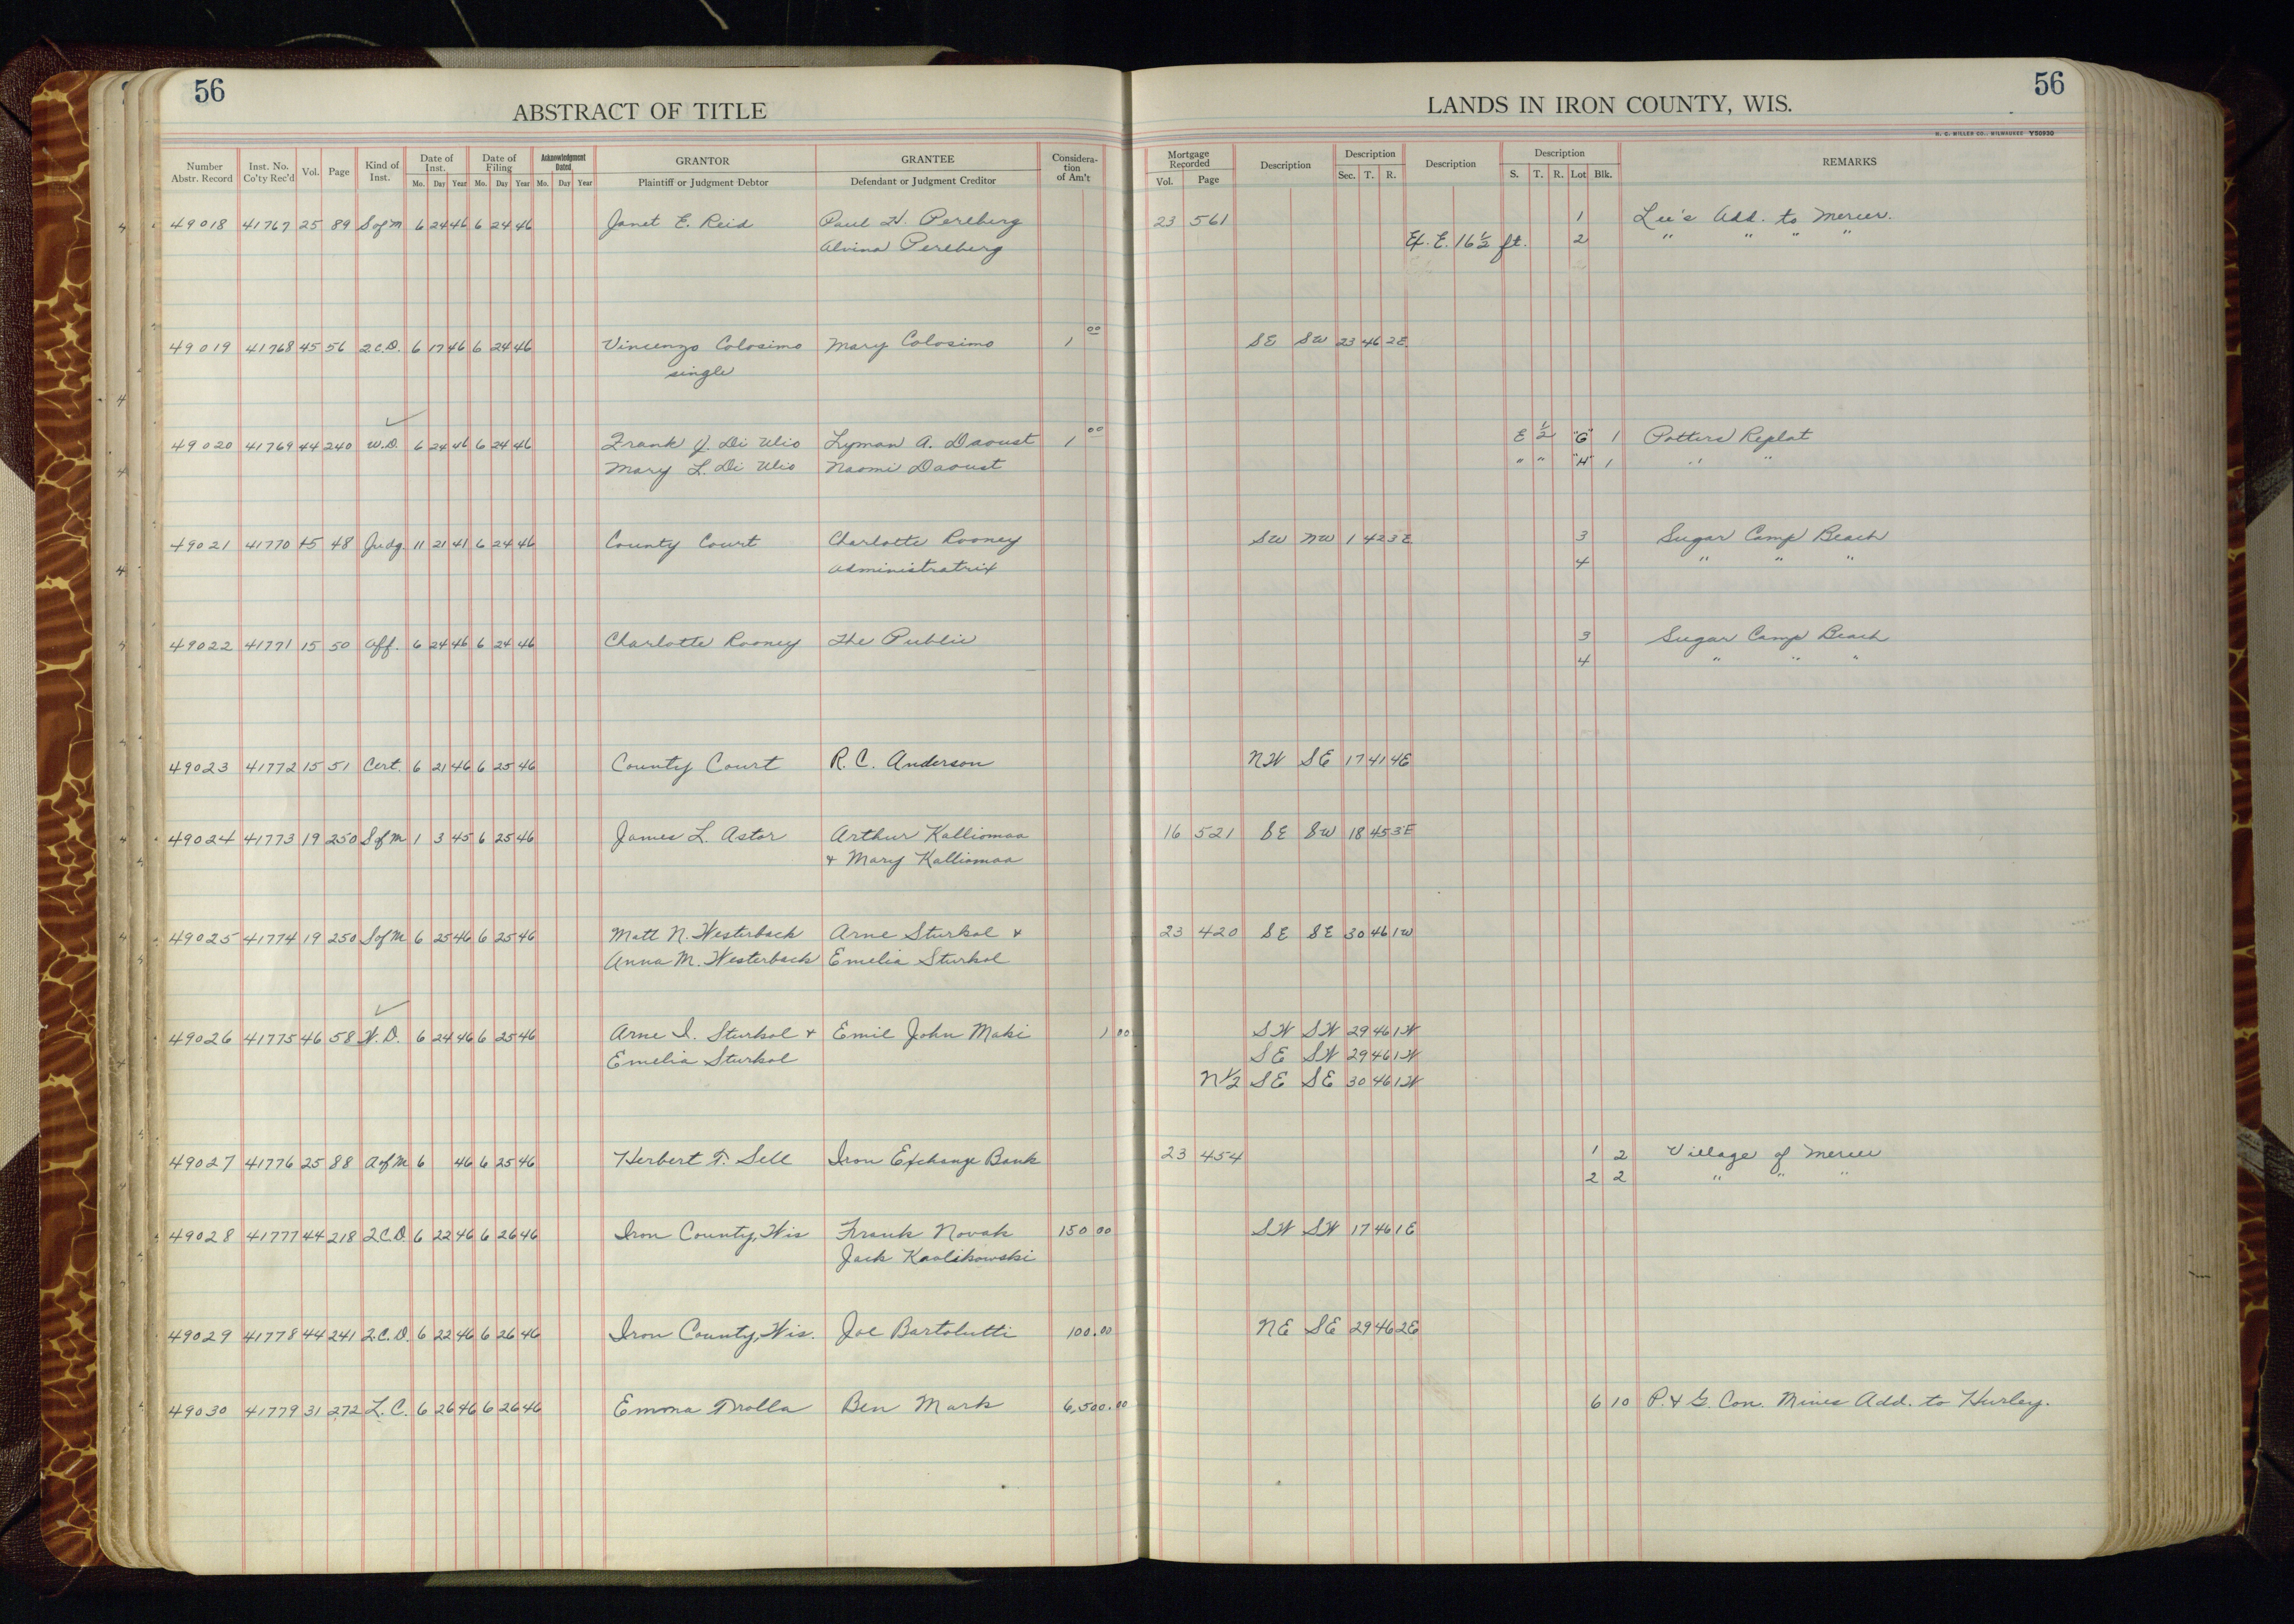 56
56
ABSTRACT OF TITLE
LANDS IN IRON COUNTY, WIS.
H. C. MILLER CO., MILWAUKEE Y50930
Number Abstr. Record | Inst. No. Co'ty Rec'd | Vol. | Page | Kind of Inst. | Date of Inst. Mo. Day Year | Date of Filing Mo. Day Year | Acknowledgment Dated Mo. Day Year | GRANTOR Plaintiff or Judgment Debtor | GRANTEE Defendant or Judgment Creditor | Consideration of Am't | Mortgage Recorded Vol. Page | Description | Description Sec. T. R. | Description | Description S. T. R. Lot Blk. | REMARKS
49018 41767 25 89 S of M 6 24 46 6 24 46 Janet E. Reid Paul H. Perlberg 23 561 1 Lee's Add. to Mercer.
Alvina Perlberg Ex. E. 16 1/2 ft. 2 " " " "
49019 41768 45 56 2 C.D. 6 17 46 6 24 46 Vincenzo Colosimo Mary Colosimo 1 00 SE SW 23 46 2E
single
49020 41769 44 240 W.D. 6 24 46 6 24 46 Frank J. Di Ulio Lyman A. Daoust 1 00 E 1/2 "G" 1 Potters Replat
Mary L. Di Ulio Naomi Daoust " " "H" 1 " "
49021 41770 15 48 Judg. 11 21 41 6 24 46 County Court Charlotte Rooney SW NW 1 42 3E 3 Sugar Camp Beach
Administratrix 4 " " "
49022 41771 15 50 Aff. 6 24 46 6 24 46 Charlotte Rooney The Public 3 Sugar Camp Beach
4 " " "
49023 41772 15 51 Cert. 6 21 46 6 25 46 County Court R. C. Anderson NW SE 17 41 4E
49024 41773 19 250 S of M 1 3 45 6 25 46 James L. Astor Arthur Kalliomaa 16 521 SE SW 18 45 3E
& Mary Kalliomaa
49025 41774 19 250 S of M 6 25 46 6 25 46 Matt N. Westerback Arne Sturkol & 23 420 SE SE 30 46 1W
Anna M. Westerback Emelia Sturkol
49026 41775 46 58 W.D. 6 24 46 6 25 46 Arne I. Sturkol & Emil John Maki 1 00 SW SW 29 46 1W
Emelia Sturkol SE SW 29 46 1W
N 1/2 SE SE 30 46 1W
49027 41776 25 88 A of M 6 46 6 25 46 Herbert T. Sell Iron Exchange Bank 23 454 1 2 Village of Mercer
2 2 " " "
49028 41777 44 218 2 C.D. 6 22 46 6 26 46 Iron County, Wis Frank Novak 150 00 SW SW 17 46 1E
Jack Kaolikowski
49029 41778 44 241 2.C.D. 6 22 46 6 26 46 Iron County, Wis. Joe Bartolutti 100.00 NE SE 29 46 2E
49030 41779 31 272 L.C. 6 26 46 6 26 46 Emma Trolla Ben Mark 6,500.00 6 10 P. & G. Con. Mines Add. to Hurley.